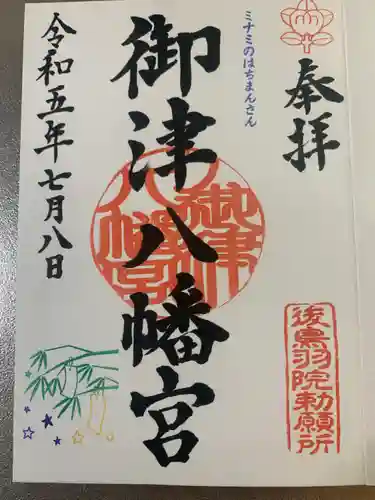 奉拝
後鳥羽院勅願所
ミナミのはちまんさん
御津八幡宮
御津八幡宮
令和五年七月八日